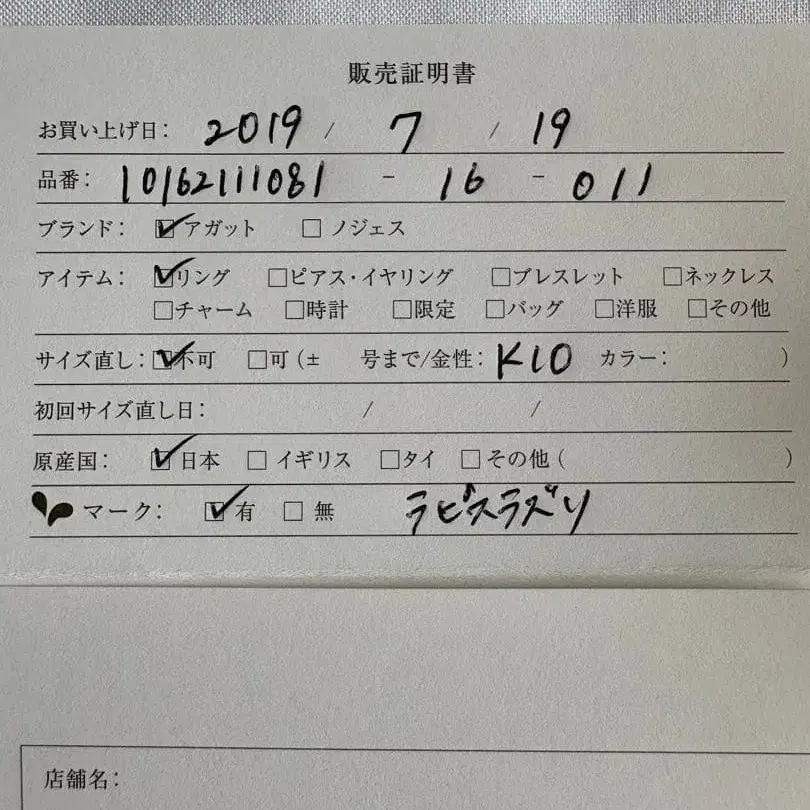 販売証明書
お買い上げ日: 2019 / 7 / 19
品番: 10162111081 - 16 - 011
ブランド: ☑アガット □ノジェス
アイテム: ☑リング □ピアス・イヤリング □ブレスレット □ネックレス
□チャーム □時計 □限定 □バッグ □洋服 □その他
サイズ直し: ☑不可 □可(± 号まで/金性: K10 カラー: )
初回サイズ直し日: / /
原産国: ☑日本 □イギリス □タイ □その他( )
マーク: ☑有 □無 ラピスラズリ
店舗名: